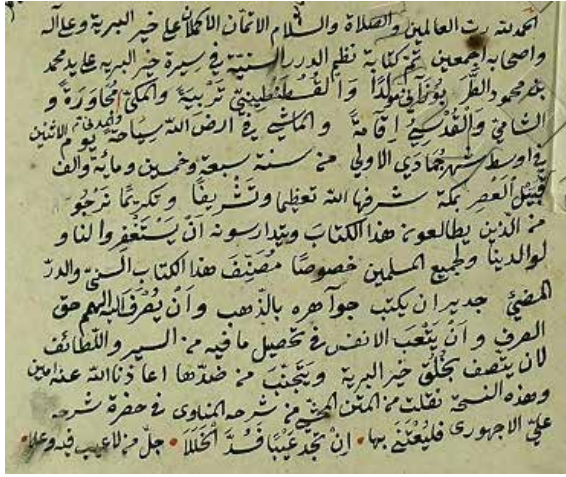 الحمد لله رب العالمين والصلاة والسلام الاتمان الاكملان على خير البرية وعلى آله
واصحابه اجمعين تم كتابة نظم الدرر السنية في سيرة خير البرية على يد محمد
بن محمود الطَّرَبُوزاني مَوْلَدًا وَالْقُسْطَنْطِينِيّ تَرْبِيَةً وَالمكيّ مُجَاوَرَةً و
الشامي وَالْقُدْسِيّ اِقَامَةً والماشي في ارض الله سِيَاحَةً يوم الاثنين
في اوسط شهر جُمَادَي الاولي من سنة سبعة وخمسين ومائة والف
قُبَيْلَ الْعَصْرِ بمكة شرفها الله تعظيما وَتَشْرِيفًا وتكريمًا نَرْجُو
من الذين يطالعون هذا الكتابَ ويتدارسونه اَنْ يَسْتَغْفِرُوا لنا و
لوالدينا ولجميع المسلمين خصوصًا مُصَنِّفَ هذا الكتابِ السَّنِيِّ والدرّ
المضيئ جدير ان يكتب جواهره بالذهب وَاَنْ يُصْرَفَ اليه الهمم حق
الصرف و اَنْ يَتْعَبَ الانفس في تحصيل ما فيه من السير واللطائف
لان يتصف بخُلُقِ خير البرية ويَتَجَنَّبَ من ضدّها اعاذنا الله عنه امين
وهذه النسخة نقلت من المتن من شرحه المناوى في حضرة شرحه
عليّ الاجهورى فليُعْتَنَي بها • اِنْ تَجِدْ عَيْبًا فَسُدَّ الْخَلَلَا • جلّ من لا عيب فيه وعلا •